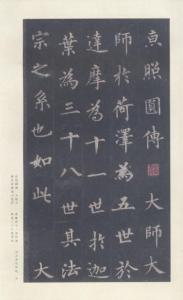 真照圓傳　大師大
師於荷澤為五世於
達摩為十一世於迦
葉為三十八世其法
宗之系也如此　大